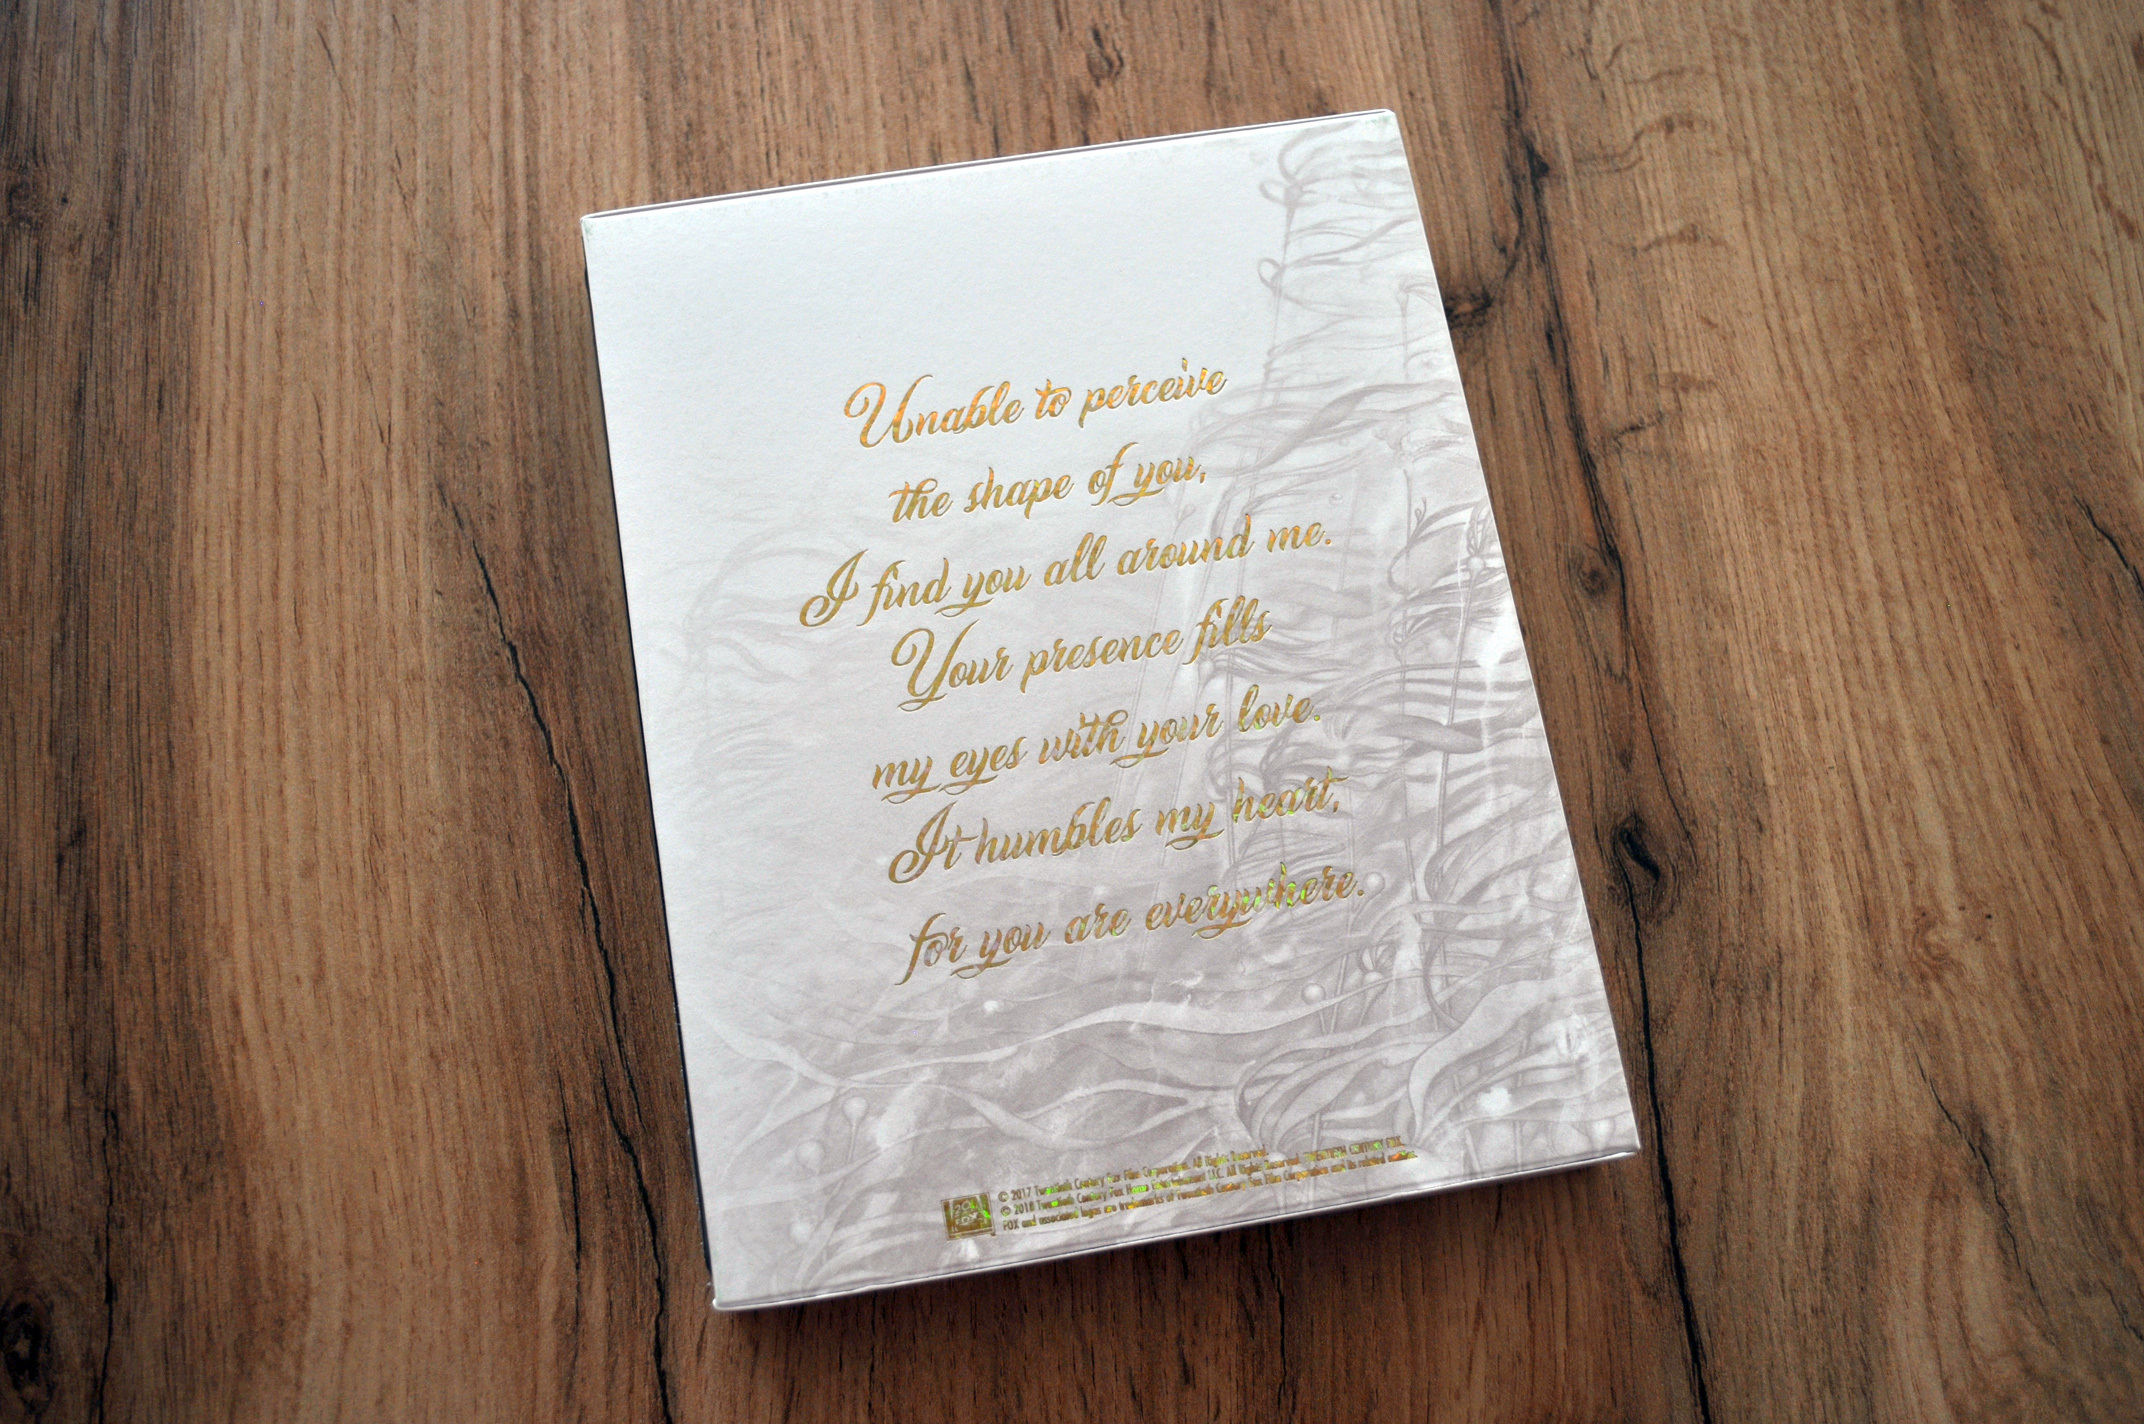 Unable to perceive
the shape of you,
I find you all around me.
Your presence fills
my eyes with your love.
It humbles my heart,
for you are everywhere.
© 2017 Twentieth Century Fox Film Corporation. All Rights Reserved.
© 2018 Twentieth Century Fox Home Entertainment LLC. All Rights Reserved. TWENTIETH CENTURY FOX,
FOX and associated logos are trademarks of Twentieth Century Fox Film Corporation and its related entities.